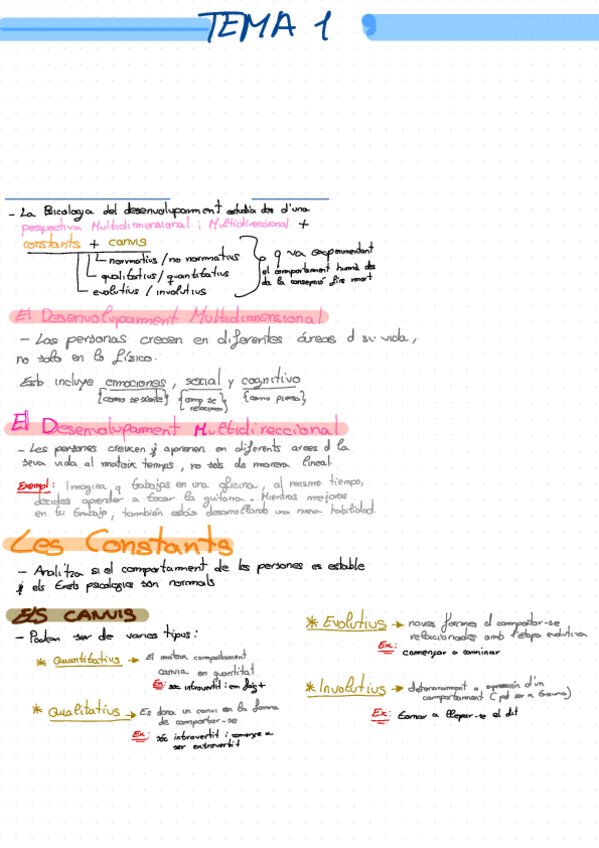 TEMA 1
- La Psicologia del desenvolupament estudia des d'una
perspectiva Multidimensional i Multidireccional +
constants + canvis
normatius / no normatius
qualitatius / quantitatius
evolutius / involutius
q va experimentant
el comportament humà des
de la consepció fins mort
El Desenvolupament Multidimensional
- Las personas crecen en diferentes áreas d su vida,
no solo en lo físico.
Esto incluye emociones, social y cognitivo
{como se siente} {comp se relaciona} {como piensa}
El Desenvolupament Multidireccional
- Les persones creixen i aprenen en diferents arees d la
seva vida al mateix temps, no sols de manera lineal.
Exempl: Imagina q trabajas en una oficina, al mismo tiempo,
decides aprender a tocar la guitarra. Mientras mejoras
en tu trabajo, también estás desarrollando una nueva habilidad.
Les Constants
- Analitza si el comportament de les persones es estable
i els trets psicologics son normals
ELS CANVIS
- Poden ser de varios tipus:
* Quantitatius → El mateix comportament
canvia en quantitat
Ex: sóc introvertit i em faig +
* Qualitatius → Es dona un canvi en la forma
de comportar-se
Ex: sóc introvertit i començo a
ser extrovertit
* Evolutius → noves formes d comportar-se
relacionades amb l'etapa evolutiva
Ex: començar a caminar
* Involutius → deteriorament o regressió d'un
comportament (pot ser x trauma)
Ex: tornar a llepar-te el dit